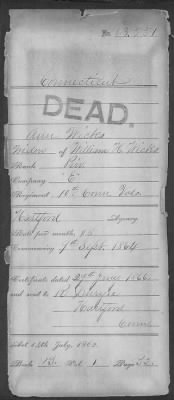 No. 63,751
Connecticut
DEAD.
Ann Wicks
Widow of William H. Wicks
Rank Priv
Company "E"
Regiment 10th Conn Vols
Hartford Agency
Rate per month, $8
Commencing 9th Sept. 1864
Certificate dated 29th June 1866
and sent to
Hartford
Conn
Act 14th July, 1862.
Book B. Vol. 1 Page 32